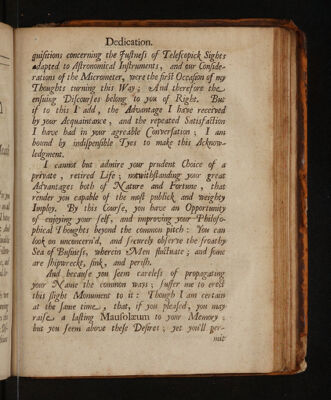 Dedication.
quisitions concerning the Justness of Telescopick Sights
adapted to Astronomical Instruments, and our Conside-
rations of the Micrometer, were the first Occasion of my
Thoughts turning this Way; And therefore the
ensuing Discourses belong to you of Right. But
if to this I add, the Advantage I have received
by your Acquaintance, and the repeated Satisfaction
I have had in your agreable Conversation; I am
bound by indispensible Tyes to make this Acknow-
ledgment.
I cannot but admire your prudent Choice of a
private, retired Life; notwithstanding your great
Advantages both of Nature and Fortune, that
render you capable of the most publick, and weighty
Imploy. By this Course, you have an Opportunity
of enjoying your self, and improving your Philoso-
phical Thoughts beyond the common pitch: You can
look on unconcern'd, and securely observe the froathy
Sea of Business, wherein Men fluctuate; and some
are shipwreckt, sink, and perish.
And because you seem careless of propagating
your Name the common ways; suffer me to erect
this slight Monument to it: Though I am certain
at the same time, that, if you pleased, you may
raise a lasting Mausolæum to your Memory;
but you seem above these Desires; yet you'll per-
mit